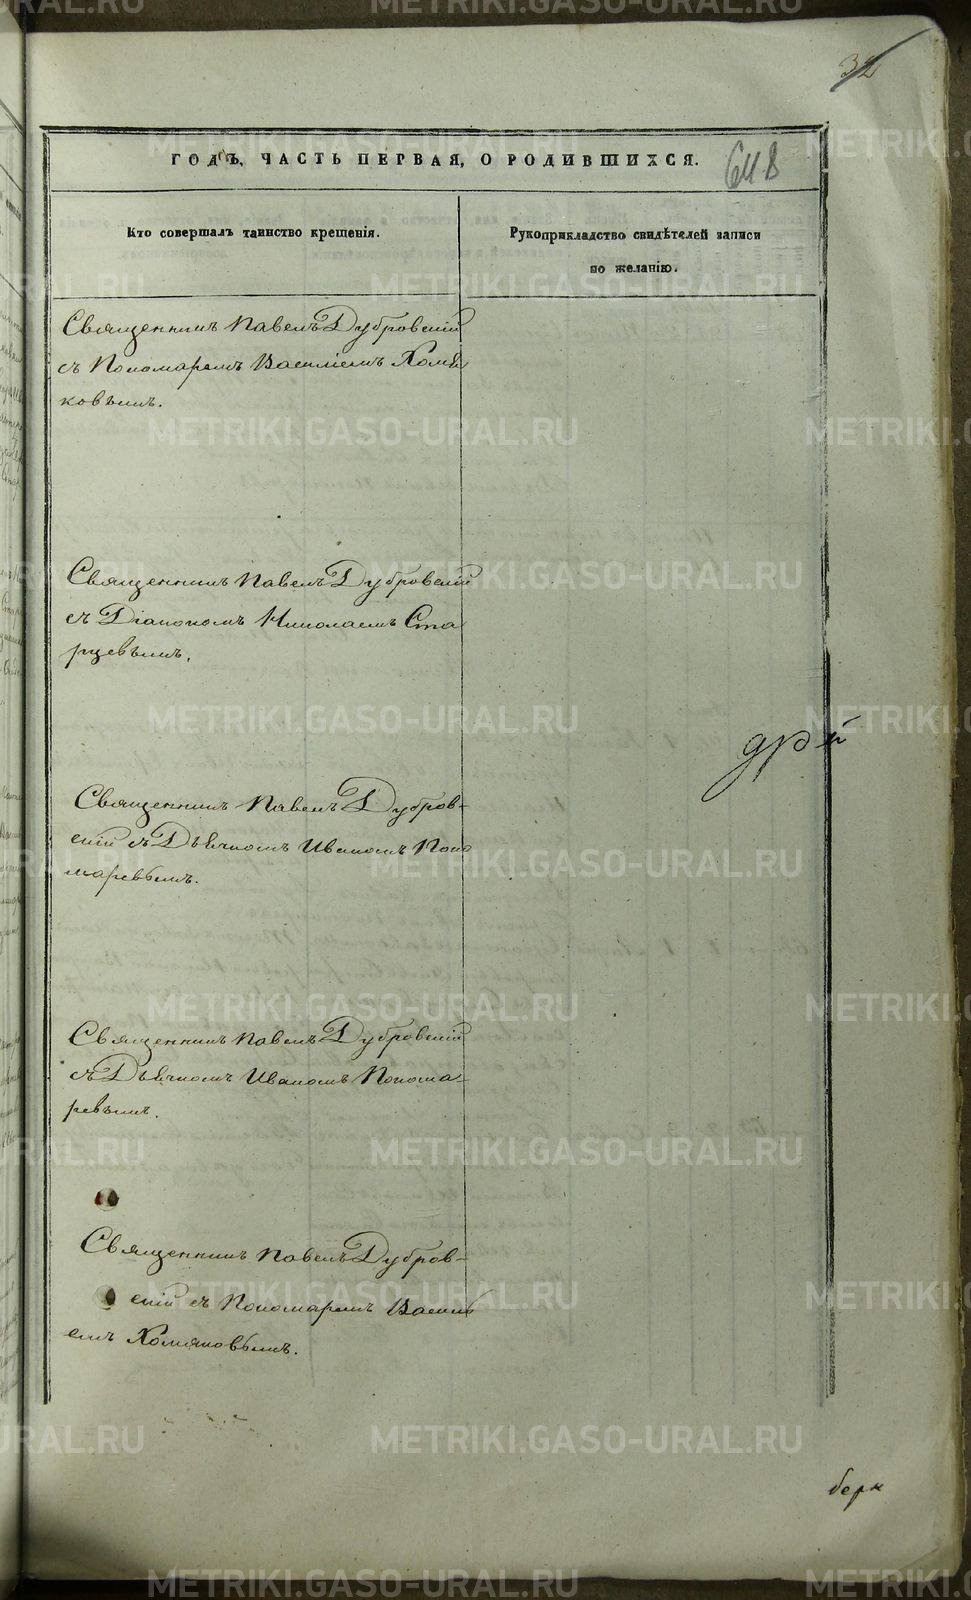 32
ГОДЪ, ЧАСТЬ ПЕРВАЯ, О РОДИВШИХСЯ.
Кто совершалъ таинство крещенія.
Рукоприкладство свидѣтелей записи
по желанію.
Священникъ Павелъ Дубровскій
съ Пономаремъ Василіемъ Хомя
ковымъ.
Священникъ Павелъ Дубровскій
съ Діакономъ Николаемъ Ста
рцевымъ.
Священникъ Павелъ Дубров-
скій съ Дьячкомъ Иваномъ Поно
маревымъ.
Священникъ Павелъ Дубровскій
съ Дьячкомъ Иваномъ Понома-
ревымъ.
Священникъ Павелъ Дубров-
скій съ Пономаремъ Васили
емъ Хомяковымъ.
METRIKI.GASO-URAL.RU